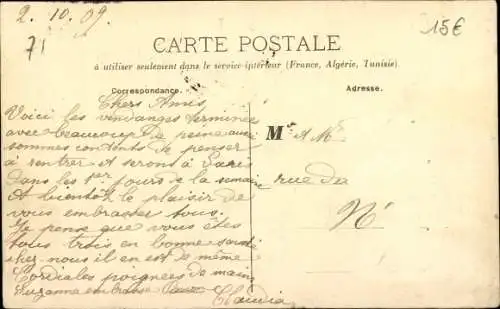 2. 10. 09.
71
15€
CARTE POSTALE
à utiliser seulement dans le service intérieur (France, Algérie, Tunisie).
Correspondance.
Adresse.
Chers Amis,
Voici les vendanges terminées
avec beaucoup de peine aussi
sommes contents de penser
à rentrer et serons à Paris
dans les 1ers jours de la semaine
A bientôt le plaisir de
vous embrasser tous.
Je pense que vous êtes
tous trois en bonne santé
chez nous il en est de même
Cordiales poignées de main
Suzanne embrasse
Claudia
M
rue du
N